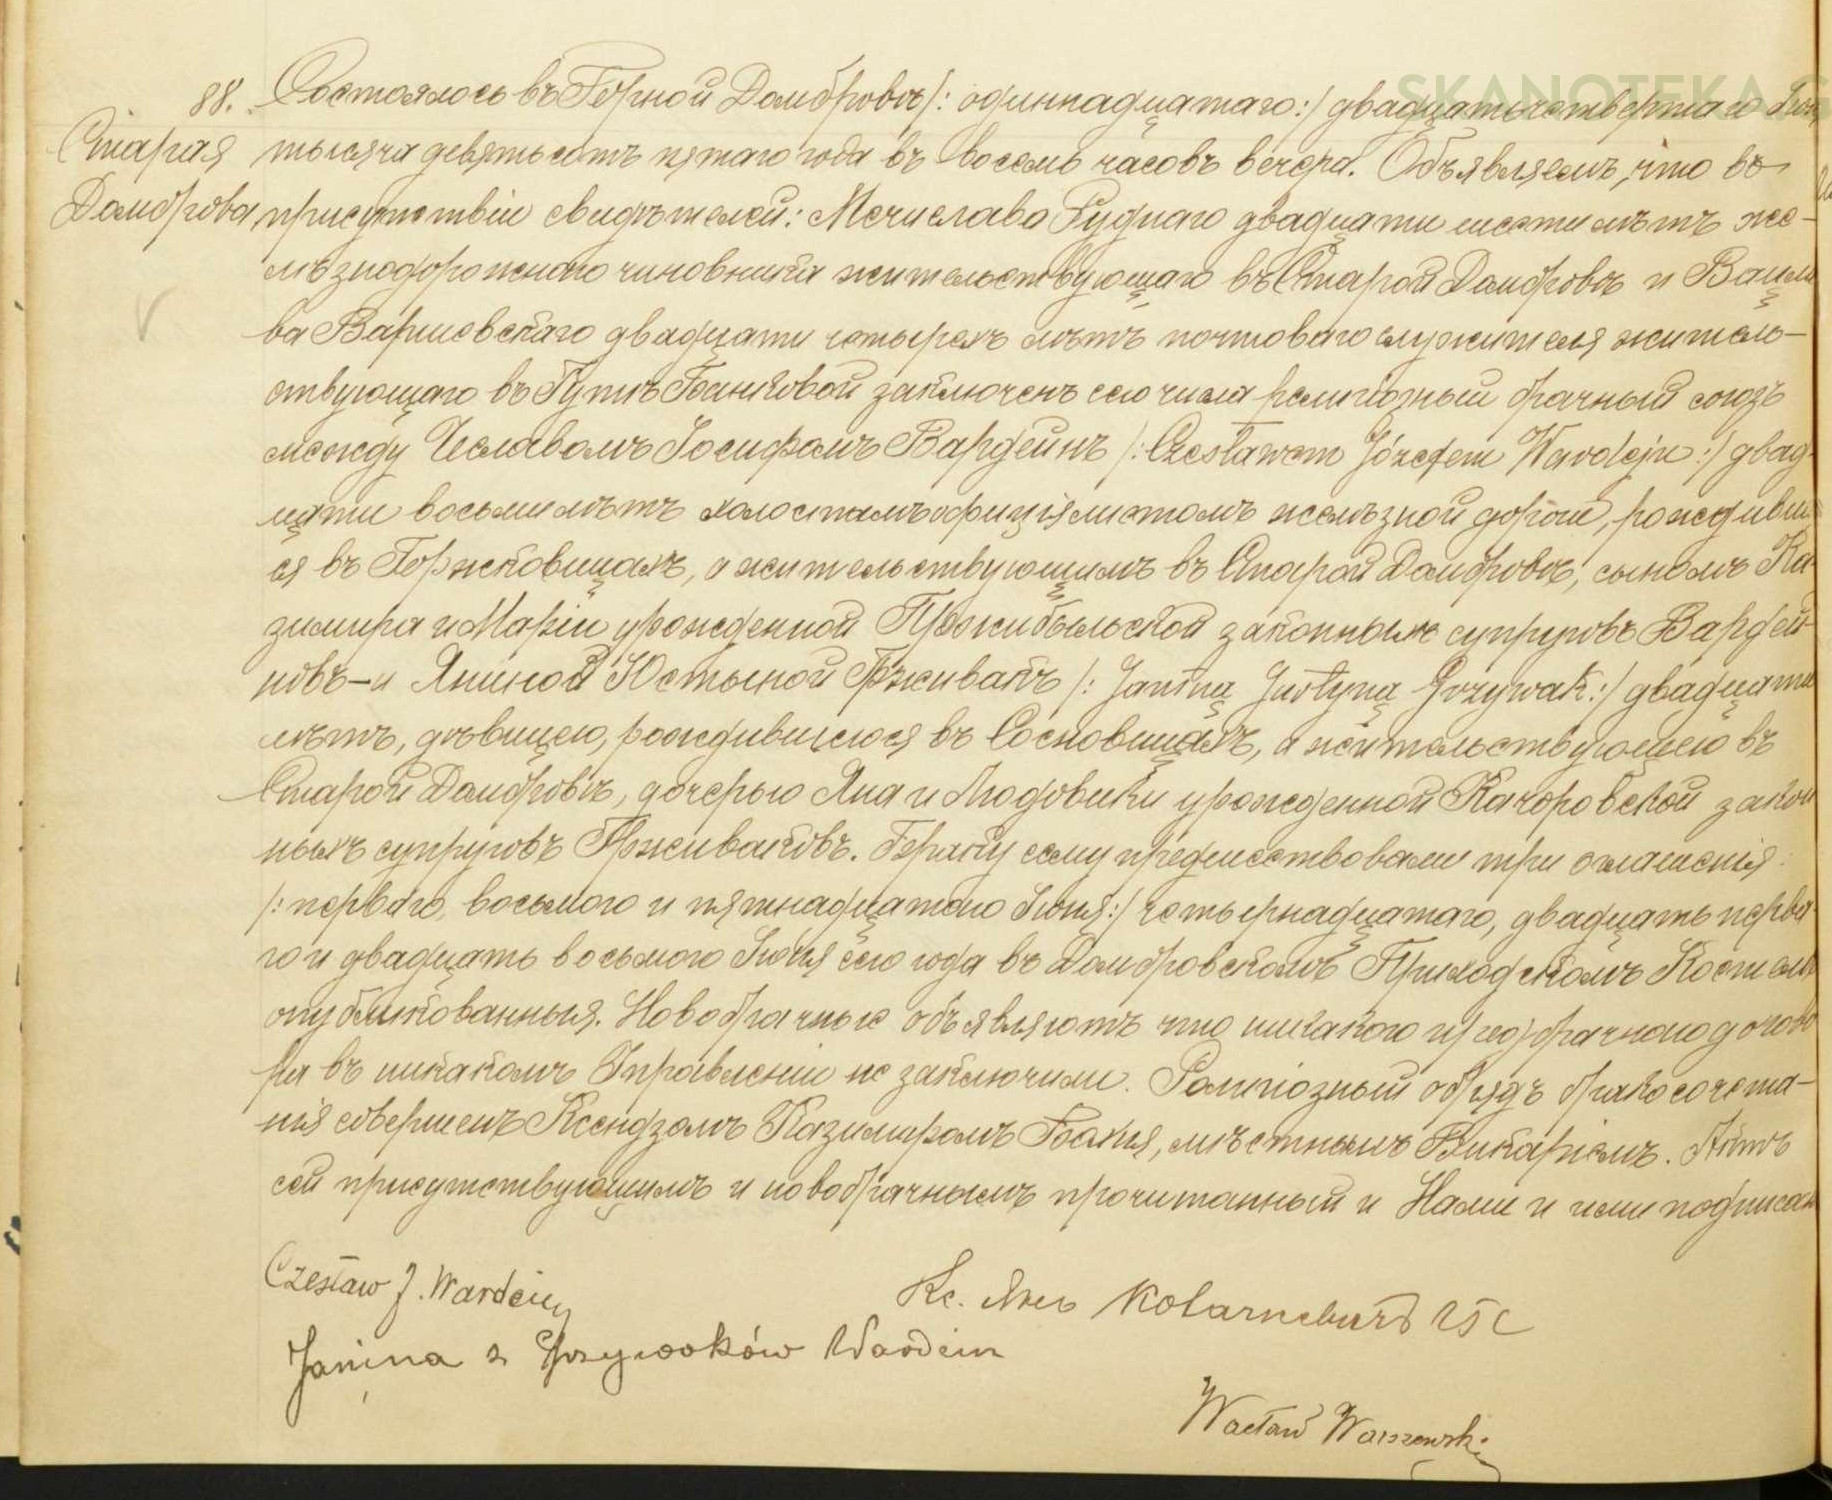 SKANOTEKA G
88. Состоялось въ Горной Домбровѣ /: одиннадцатаго :/ двадцать четвертаго Іюня
Старая
тысяча девятьсотъ пятаго года въ восемь часовъ вечера. Объявляемъ, что въ
Домброва
присутствіи свидѣтелей: Мечислава Руднаго двадцати шести лѣтъ же-
лѣзнодорожнаго чиновника жительствующаго въ Старой Домбровѣ и Вацла
ва Варшевскаго двадцати четырехъ лѣтъ почтоваго служителя житель-
ствующаго въ Гутѣ Банковой заключенъ сего числа религіозный брачный союзъ
между Чеславомъ Іосифомъ Вардейнъ /: Czesławem Józefem Wardejn :/ двад
цати восьми лѣтъ холостымъ оффиціялистомъ желѣзной дороги, рождивш
ся въ Горжковицахъ, а жительствующимъ въ Старой Домбровѣ, сыномъ Ка
зимира и Маріи урожденной Пржибыльской законныхъ супруговъ Вардей
новъ – и Яниной Юстыной Грживакъ /: Janiną Justyną Grzywak :/ двадцати
лѣтъ, дѣвицею, рождившеюся въ Сосновицахъ, а жительствующею въ
Старой Домбровѣ, дочерью Яна и Людовики урожденной Качоровской закон
ныхъ супруговъ Грживаковъ. Браку сему предшествовали три оглашенія
/: перваго, восьмого и пятнадцатаго Іюня :/ четырнадцатаго, двадцать перва
го и двадцать восьмого Іюня сего года въ Домбровскомъ Приходскомъ Костелѣ
опубликованныя. Новобрачные объявляютъ что никакого предбрачного догово
ра въ никакомъ Управленіи не заключили. Религіозный обрядъ бракосочета-
нія совершенъ Ксендзомъ Казимиромъ Баня, мѣстнымъ Викаріемъ. Актъ
сей присутствующимъ и новобрачнымъ прочитанный и Нами и ими подписан
Czesław J. Wardein
Кс.
Janina z Grzywaków Wardein
Wacław Warszewski